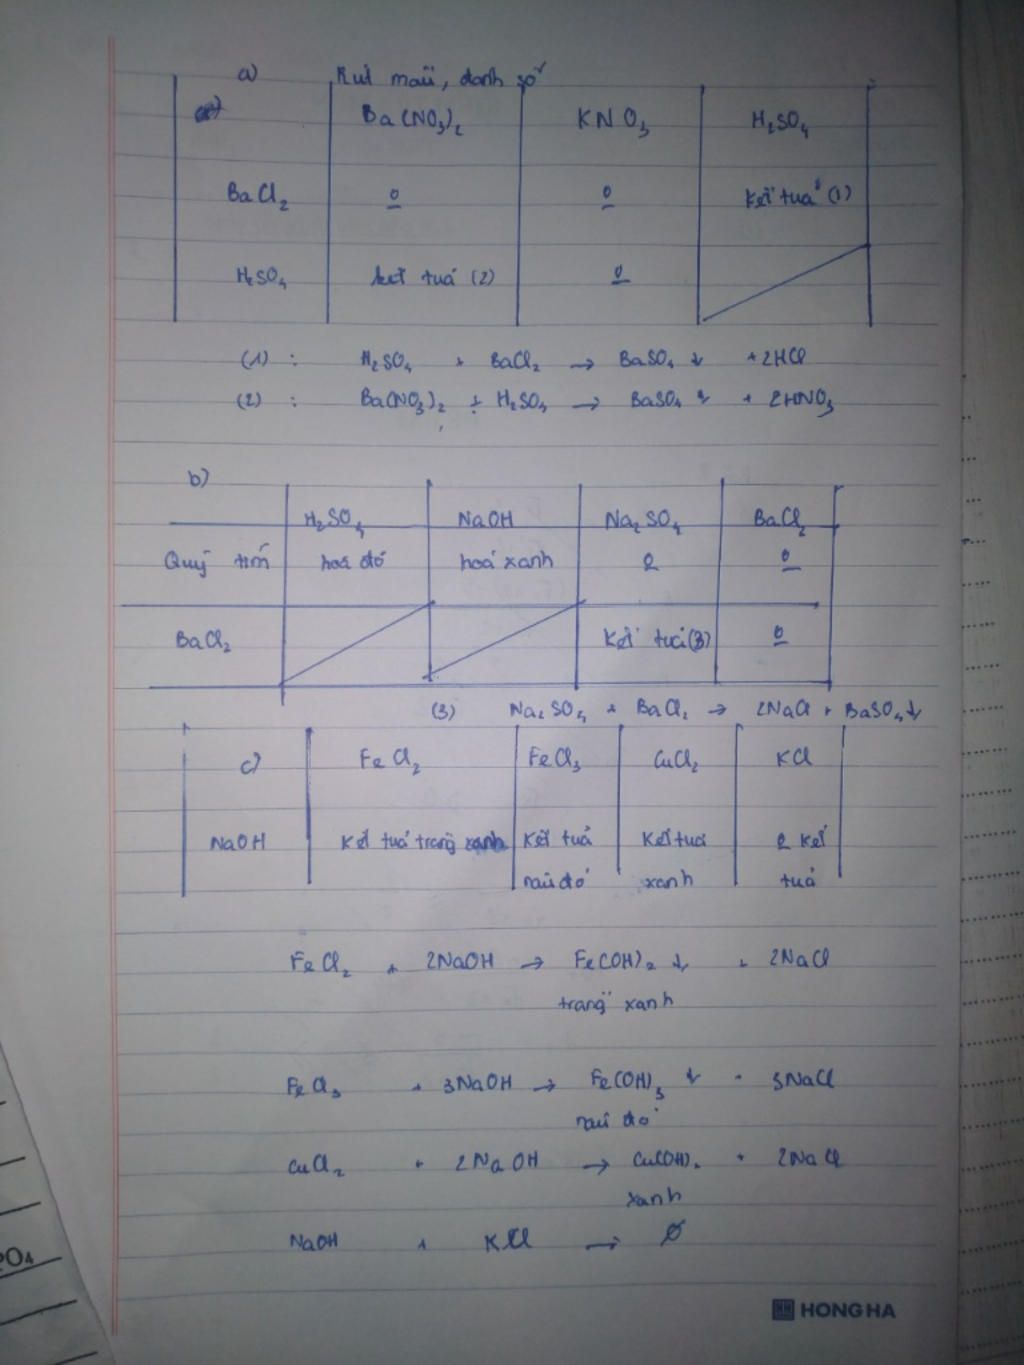 a) Rút mẫu, đánh số
Ba(NO3)2 KNO3 H2SO4
BaCl2 0 0 Kết tủa (1)
H2SO4 kết tủa (2) 0
(1) : H2SO4 + BaCl2 → BaSO4 ↓ + 2HCl
(2) : Ba(NO3)2 + H2SO4 → BaSO4 ↓ + 2HNO3
b)
H2SO4 NaOH Na2SO4 BaCl2
Quỳ tím hoá đỏ hoá xanh 0 0
BaCl2 Kết tủa (3) 0
(3) Na2SO4 + BaCl2 → 2NaCl + BaSO4 ↓
c) FeCl2 FeCl3 CuCl2 KCl
NaOH Kết tủa trắng xanh Kết tủa Kết tủa 0 kết
nâu đỏ xanh tủa
FeCl2 + 2NaOH → Fe(OH)2 ↓ + 2NaCl
trắng xanh
FeCl3 + 3NaOH → Fe(OH)3 ↓ + 3NaCl
nâu đỏ
CuCl2 + 2NaOH → Cu(OH)2 + 2NaCl
xanh
NaOH + KCl → ∅
HONG HA